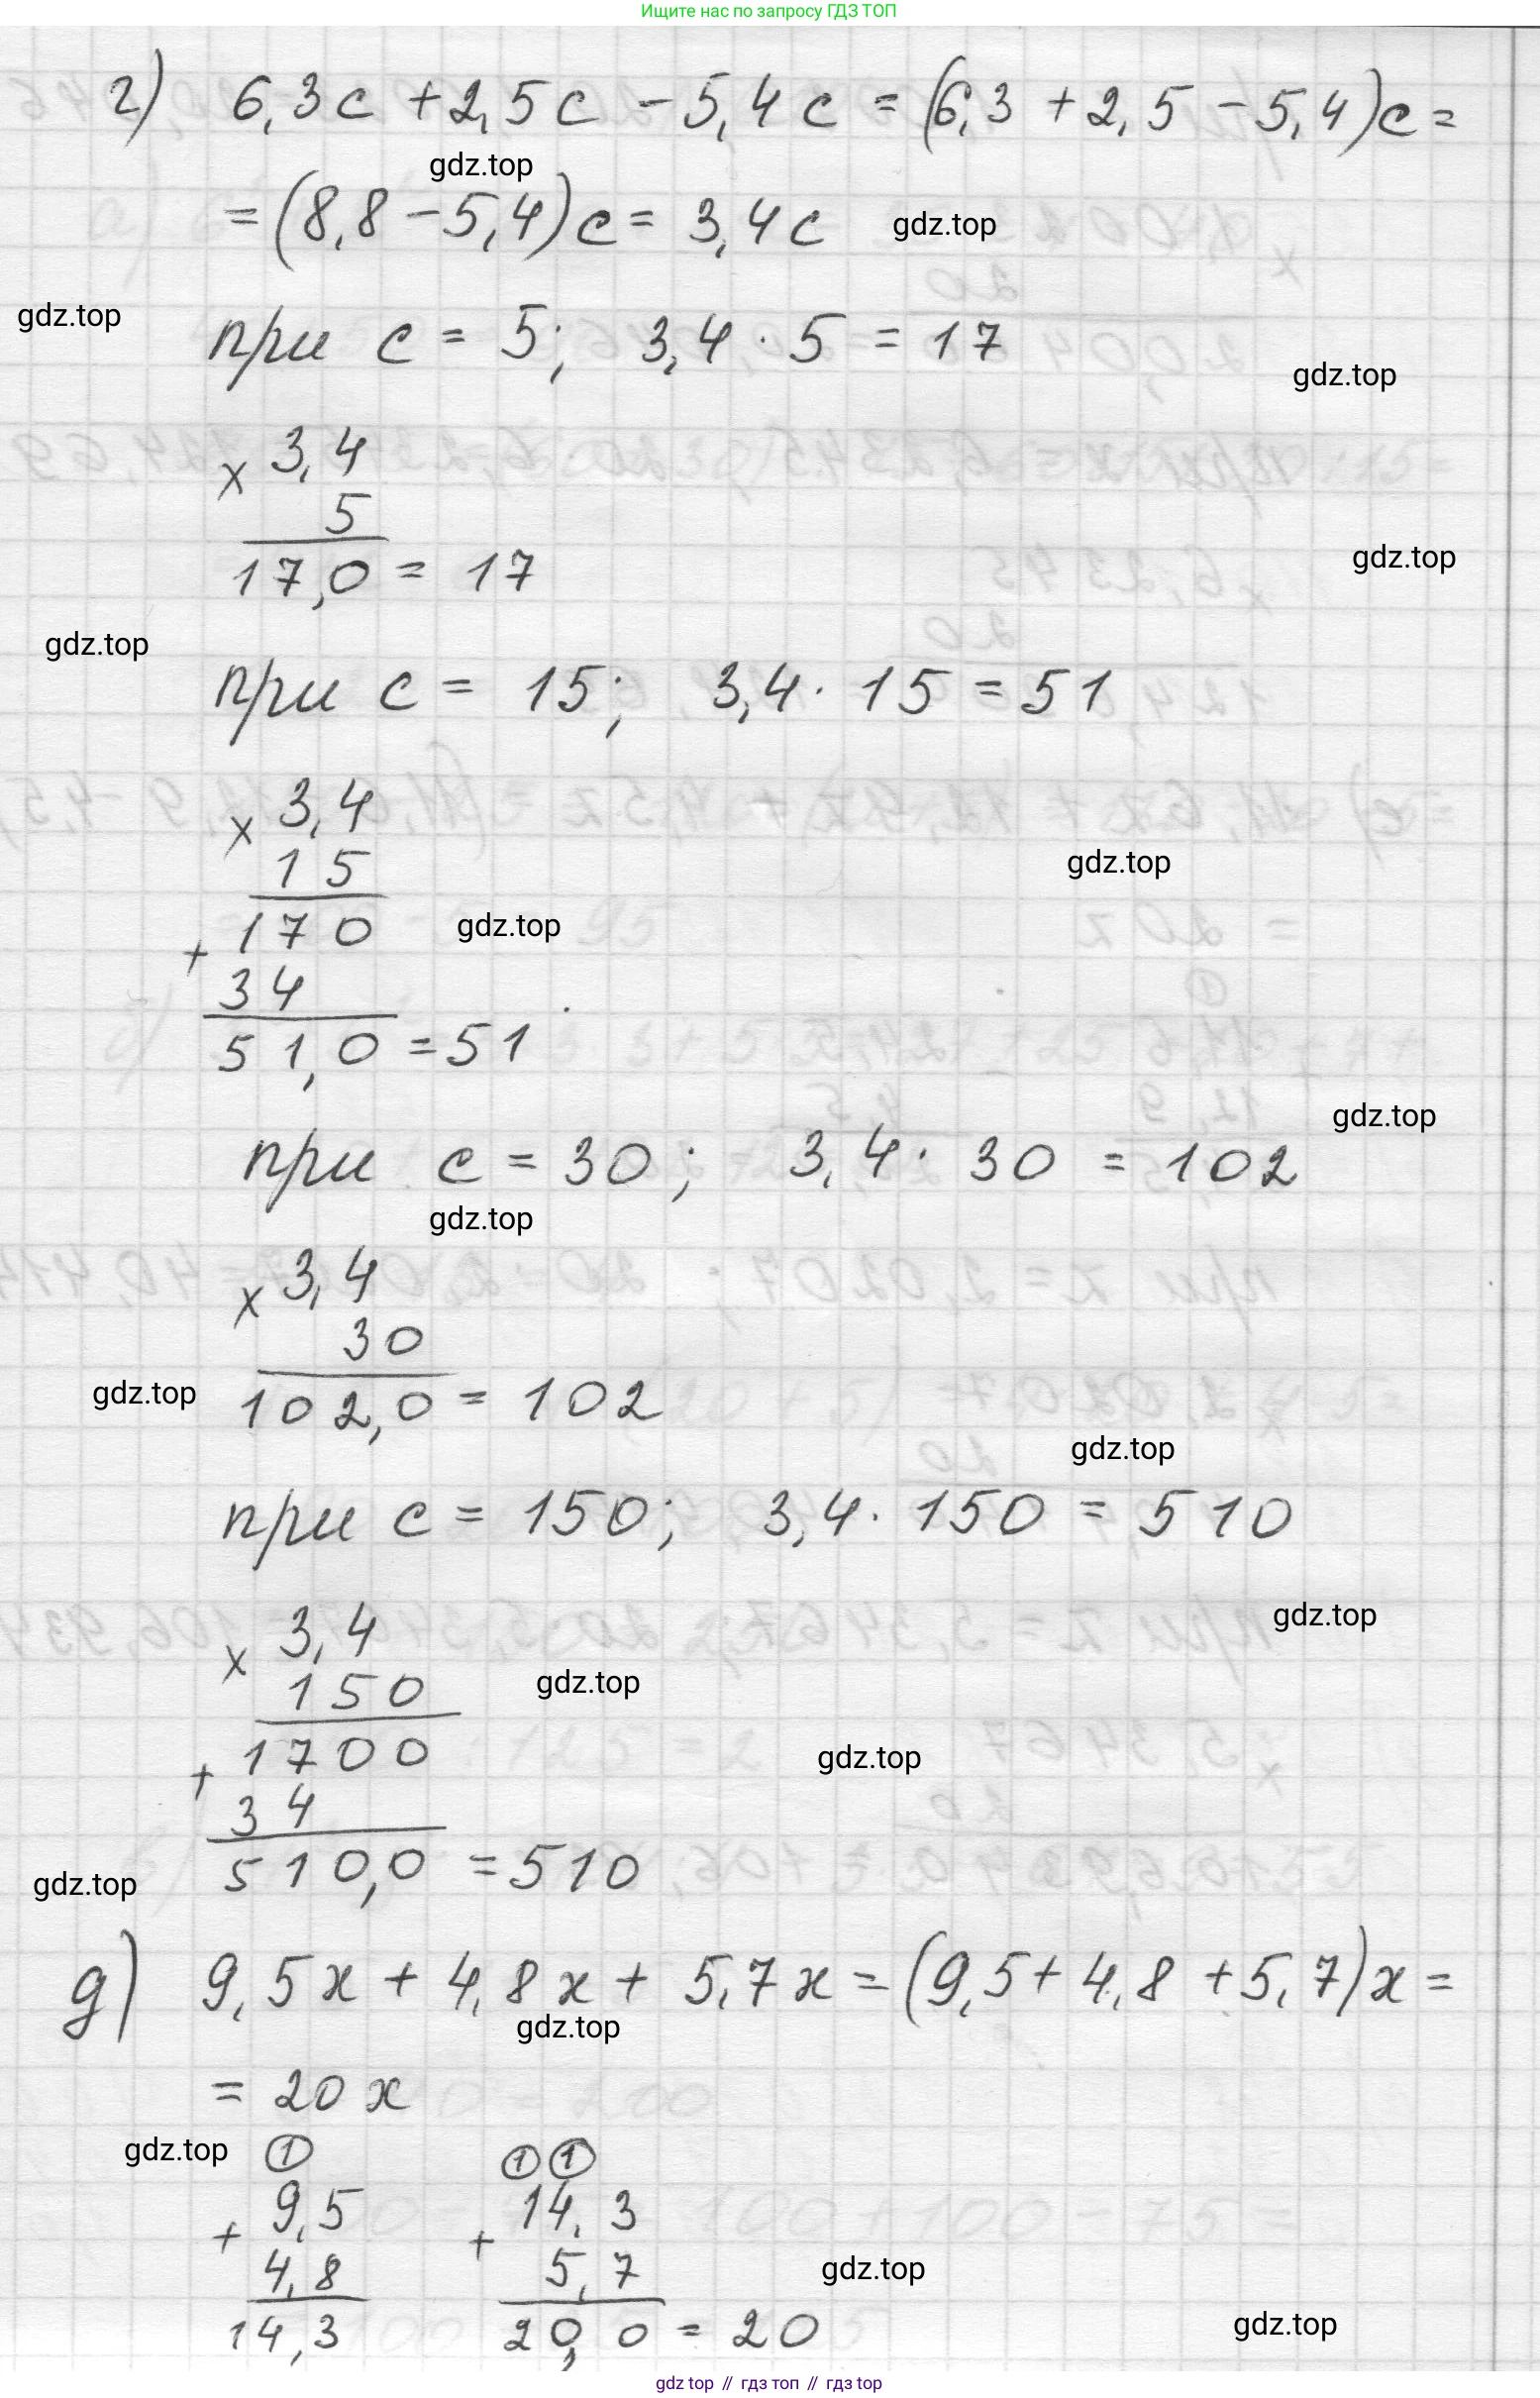 Ищите нас по запросу ГДЗ ТОП
г) 6,3c + 2,5c - 5,4c = (6,3 + 2,5 - 5,4)c =
gdz.top
= (8,8 - 5,4)c = 3,4c gdz.top
gdz.top
при c = 5; 3,4 · 5 = 17
gdz.top
× 3,4
5
gdz.top
17,0 = 17
gdz.top
при c = 15; 3,4 · 15 = 51
× 3,4
15
gdz.top
170 gdz.top
+
34
51,0 = 51
gdz.top
при c = 30; 3,4 · 30 = 102
gdz.top
× 3,4
30
gdz.top
102,0 = 102
gdz.top
при c = 150; 3,4 · 150 = 510
gdz.top
× 3,4
150 gdz.top
1700 gdz.top
+
34
510,0 = 510
gdz.top
д) 9,5x + 4,8x + 5,7x = (9,5 + 4,8 + 5,7)x =
gdz.top
= 20x
gdz.top 1 1 1
9,5 14,3
+ +
4,8 5,7 gdz.top
14,3 20,0 = 20 gdz.top
gdz top // гдз топ // gdz top